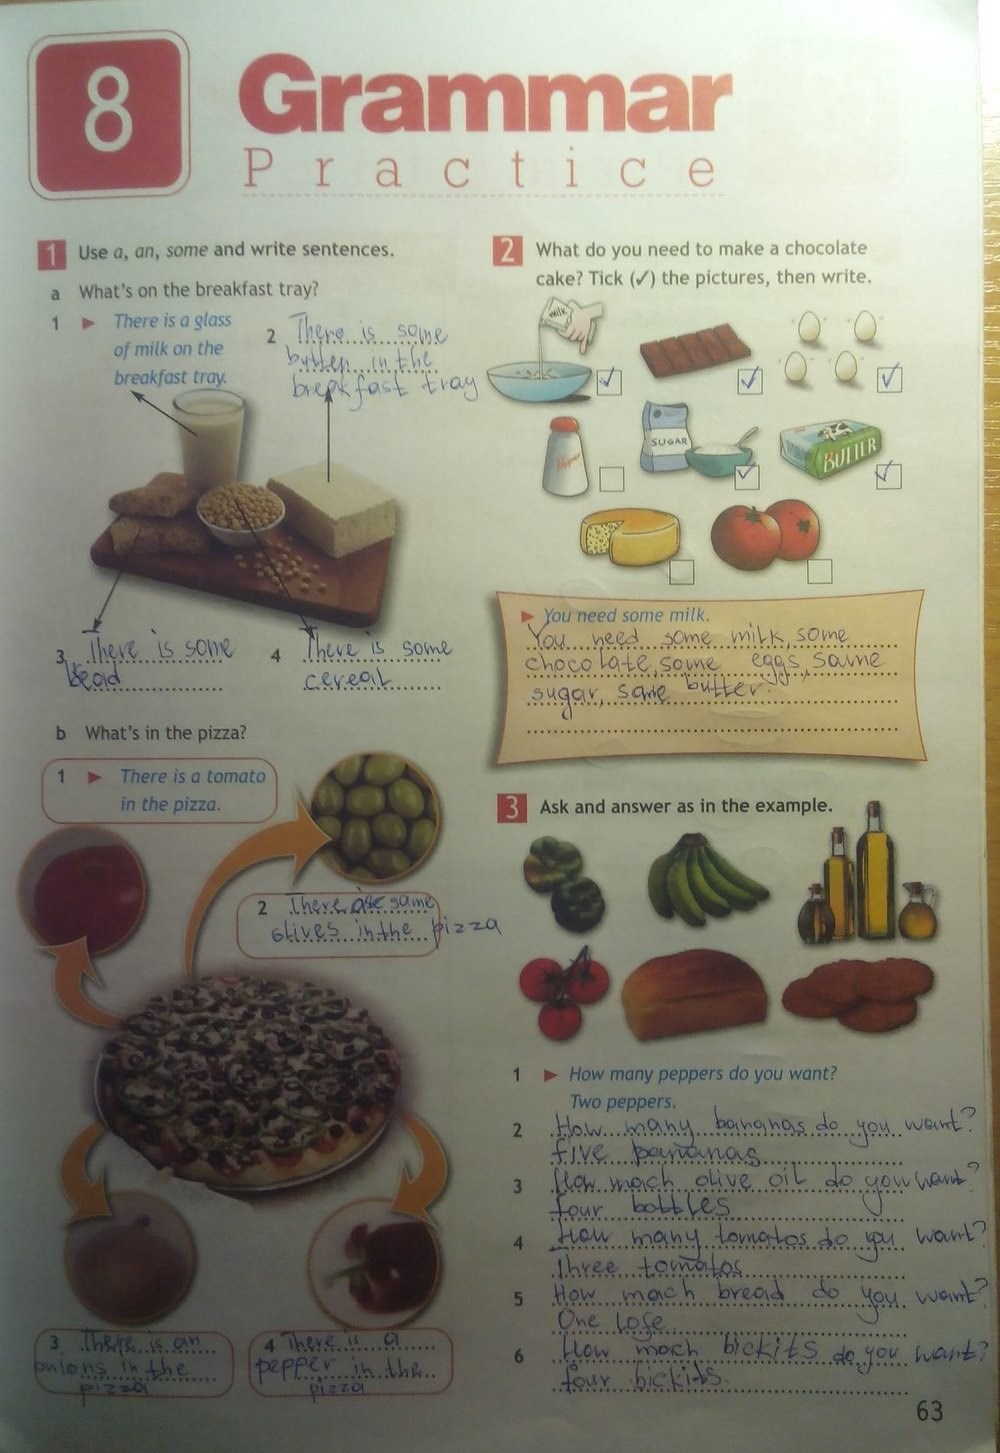 8
Grammar
Practice
1 Use a, an, some and write sentences.
a What's on the breakfast tray?
1 ► There is a glass
of milk on the
breakfast tray.
2 There is some
butter in the
breakfast tray
3 There is some
bead
4 There is some
cereal
b What's in the pizza?
1 ► There is a tomato
in the pizza.
2 There are some
olives in the pizza
3 There is an
onions in the
pizza
4 There is a
pepper in the
pizza
2 What do you need to make a chocolate
cake? Tick (✓) the pictures, then write.
milk
SUGAR
BUTTER
► You need some milk.
You need some milk, some
chocolate, some eggs, some
sugar, some butter.
3 Ask and answer as in the example.
1 ► How many peppers do you want?
Two peppers.
2 How many bananas do you want?
five bananas
3 How mach olive oil do you want?
four bottles
4 How many tomatos do you want?
Three tomatos
5 How mach bread do you want?
One lofe
6 How mach bickits do you want?
four bickits.
63